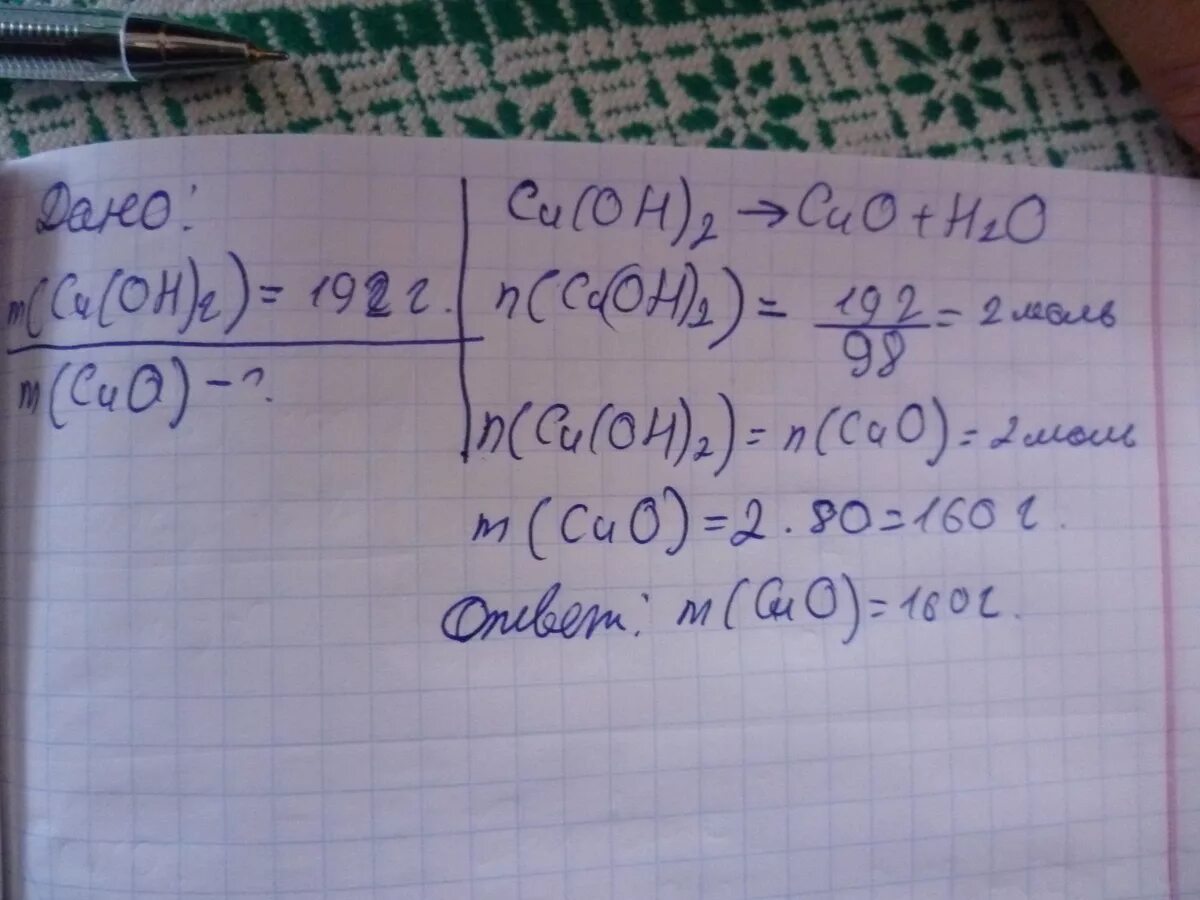 Дано:
m(Cu(OH)2) = 192 г.
m(CuO) - ?
Cu(OH)2 → CuO + H2O
n(Cu(OH)2) = 192/98 = 2 моль
n(Cu(OH)2) = n(CuO) = 2 моль
m(CuO) = 2 · 80 = 160 г.
Ответ: m(CuO) = 160 г.